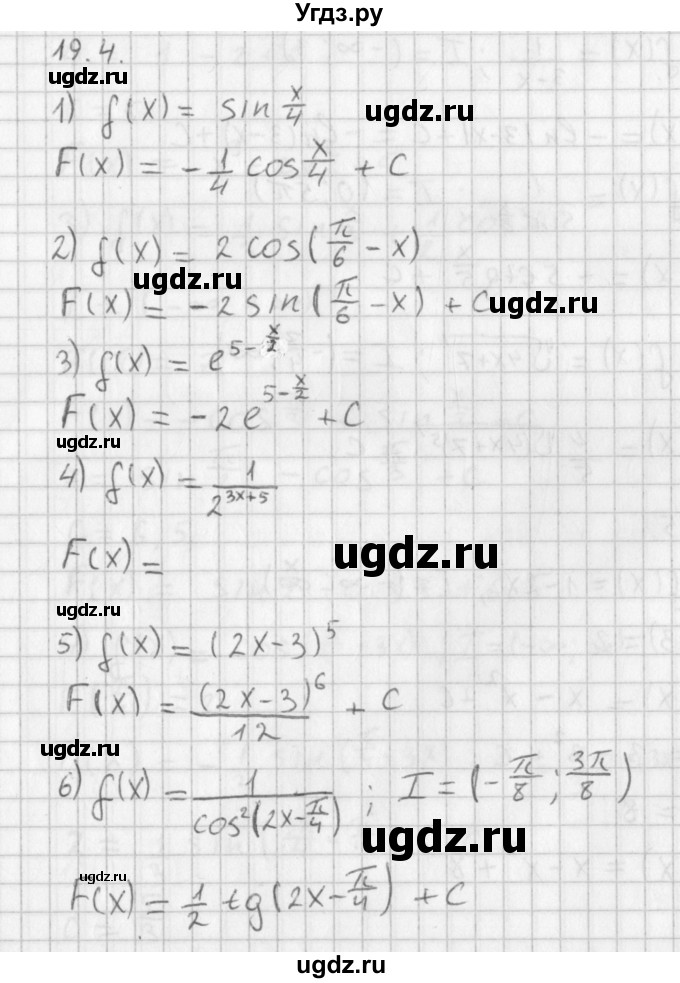 Угдз.ру
19.4.
ugdz.ru
1) f(x) = sin x/4
ugdz.ru
F(x) = -1/4 cos x/4 + C
2) f(x) = 2 cos(π/6 - x)
ugdz.ru
F(x) = -2 sin(π/6 - x) + C
ugdz.ru
3) f(x) = e^(5 - x/2)
F(x) = -2e^(5 - x/2) + C
ugdz.ru
4) f(x) = 1/2^(3x+5)
F(x) =
ugdz.ru
ugdz.ru
5) f(x) = (2x-3)^5
F(x) = (2x-3)^6/12 + C
ugdz.ru
6) f(x) = 1/cos²(2x-π/4) ; I = (-π/8 ; 3π/8)
ugdz.ru
ugdz.ru
F(x) = 1/2 tg(2x-π/4) + C
ugdz.ru